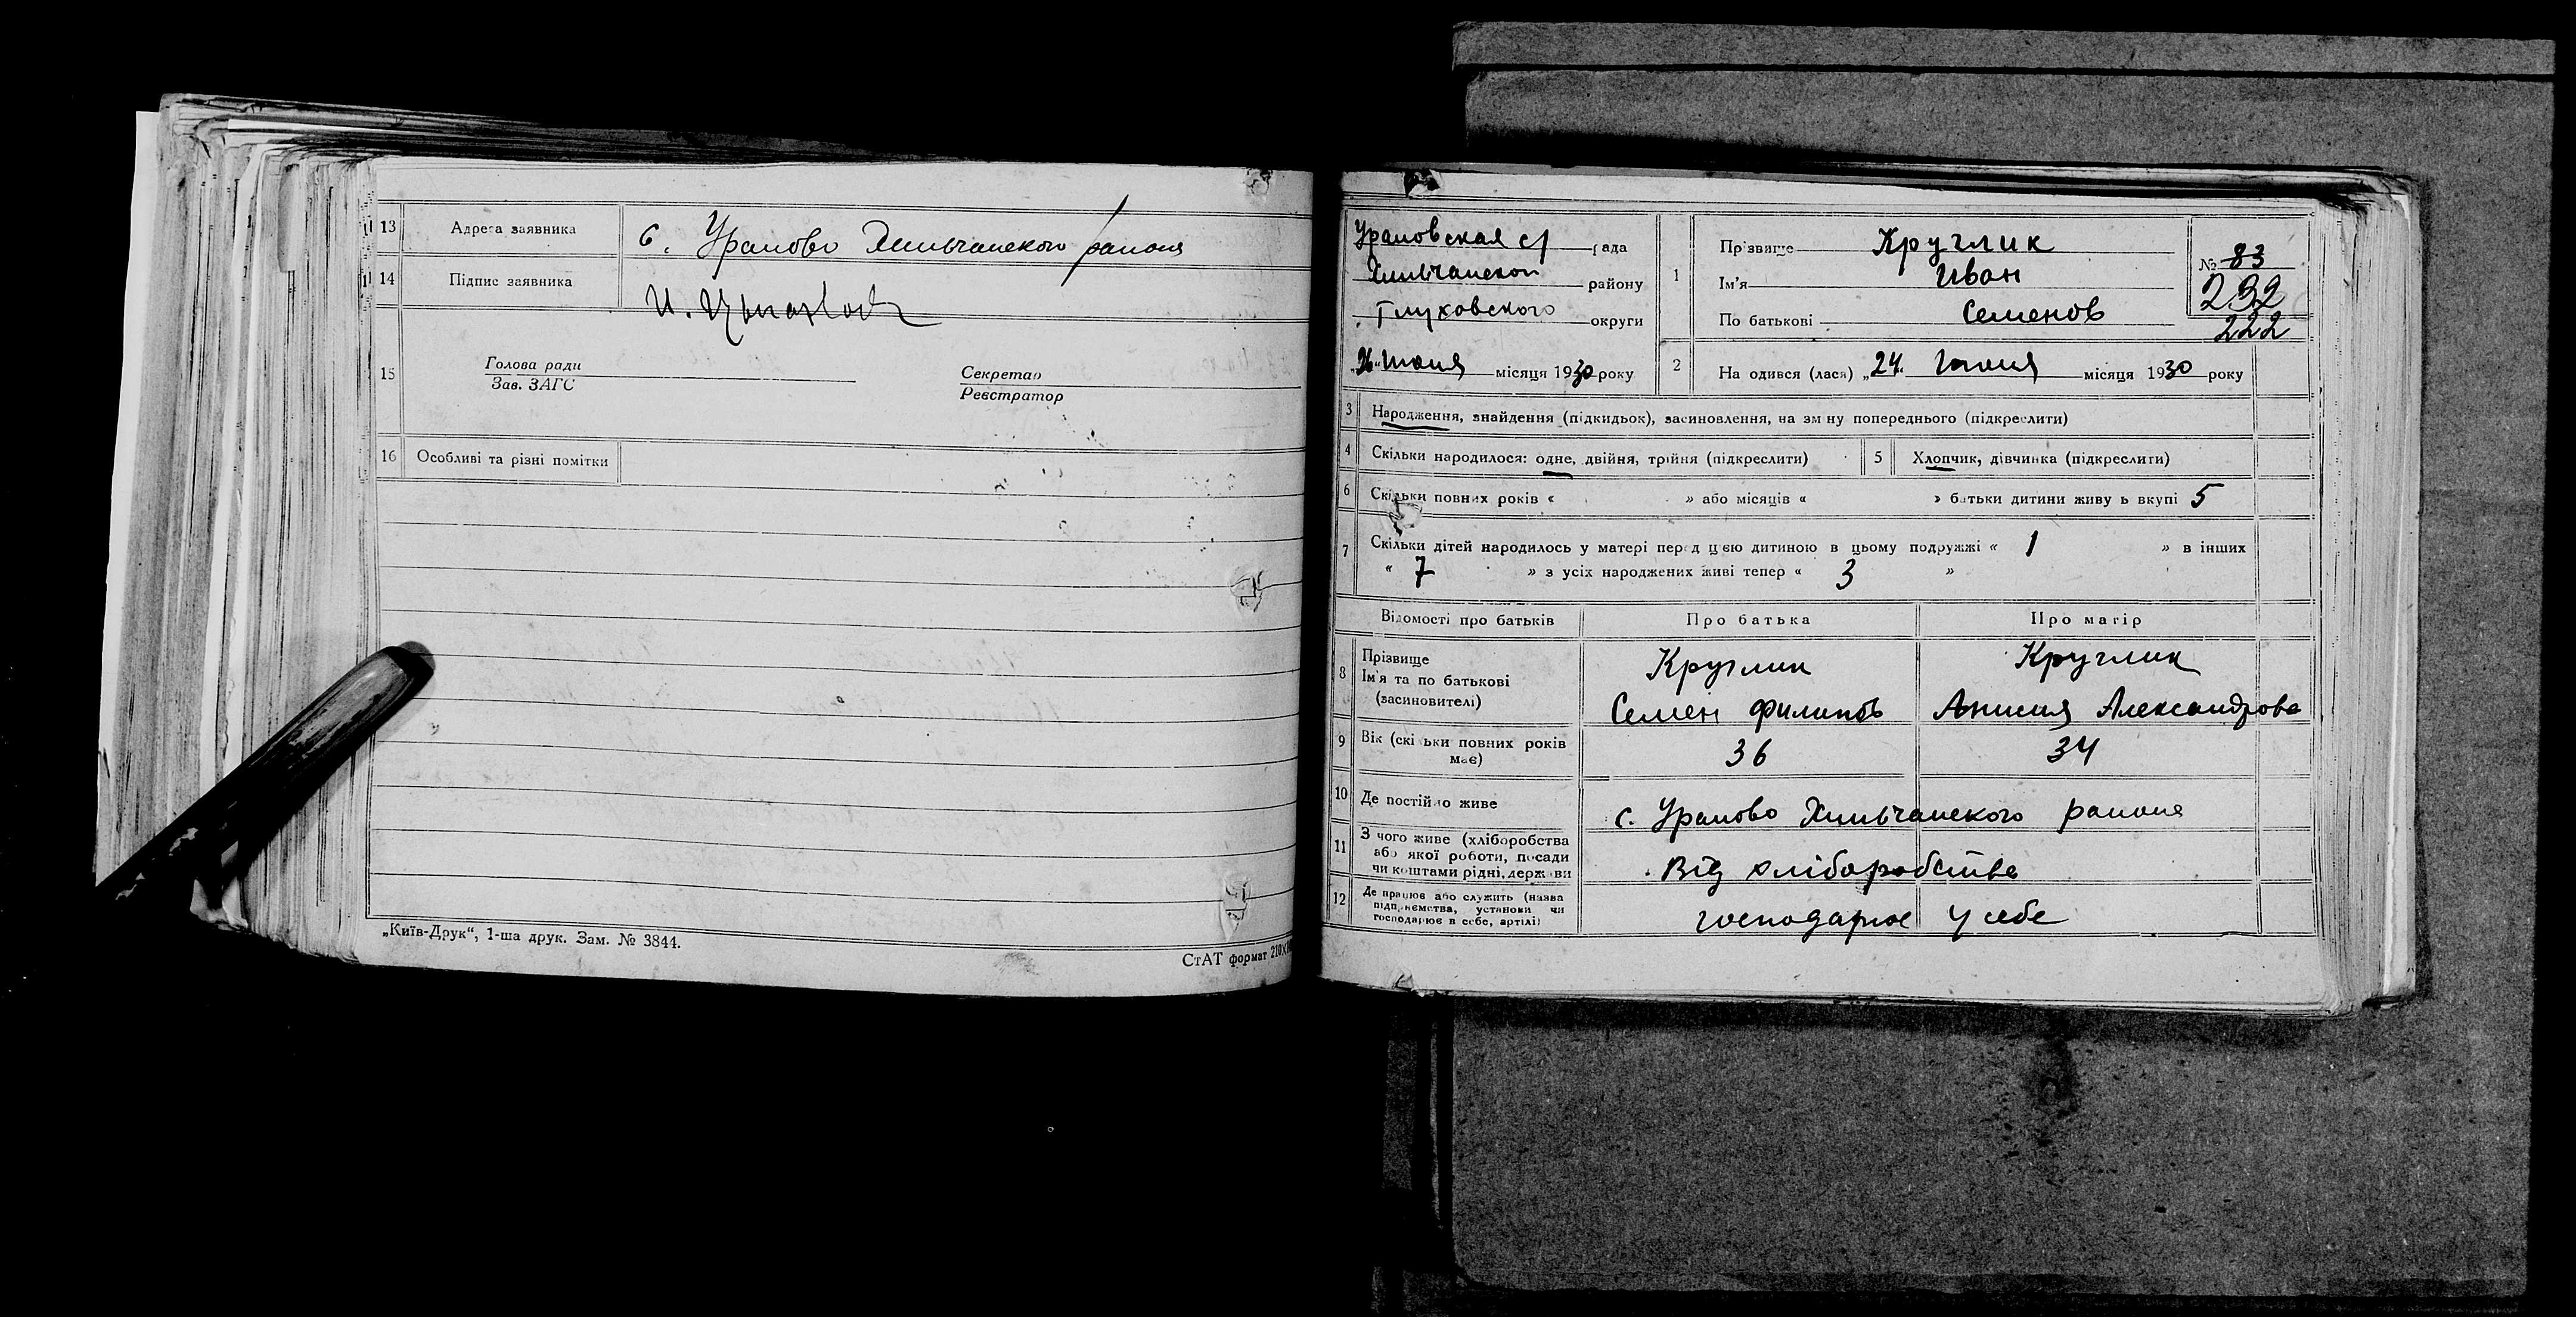 13 Адреса заявника с. Урамово Хильчанского района
14 Підпис заявника
15 Голова ради Секретар
Зав. ЗАГС Реєстратор
16 Особливі та різні помітки
„Київ-Друк“, 1-ша друк. Зам. № 3844.
СтАТ формат 210×
Урамовская с/ рада
Хильчанского району
Глуховского округи
"26" июня місяця 1930 року
1 Прізвище Круглик
Ім'я Иван
По батькові Семенов
№ 83
232
222
2 На одився (лася) „24" июня місяця 1930 року
3 Народження, знайдення (підкидьок), засиновлення, на зм ну попереднього (підкреслити)
4 Скільки народилося: одне, двійня, трійня (підкреслити) 5 Хлопчик, дівчинка (підкреслити)
6 Скільки повних років « » або місяців « » батьки дитини живу ь вкупі 5
7 Скільки дітей народилось у матері перед цією дитиною в цьому подружжі « 1 » в інших
« 7 » з усіх народжених живі тепер « 3 »
Відомості про батьків Про батька Про матір
8 Прізвище Круглик Круглик
Ім'я та по батькові
(засиновителі) Семен Филипов Анисия Александрова
9 Вік (скі ьки повних років має) 36 34
10 Де постійно живе с. Урамово Хильчанского района
11 З чого живе (хліборобства
або якої роботи, посади
чи коштами рідні, держави Від хліборобства
12 Де працює або служить (назва
підприємства, установи чи
господарює в себе, артілі) господарює у себе